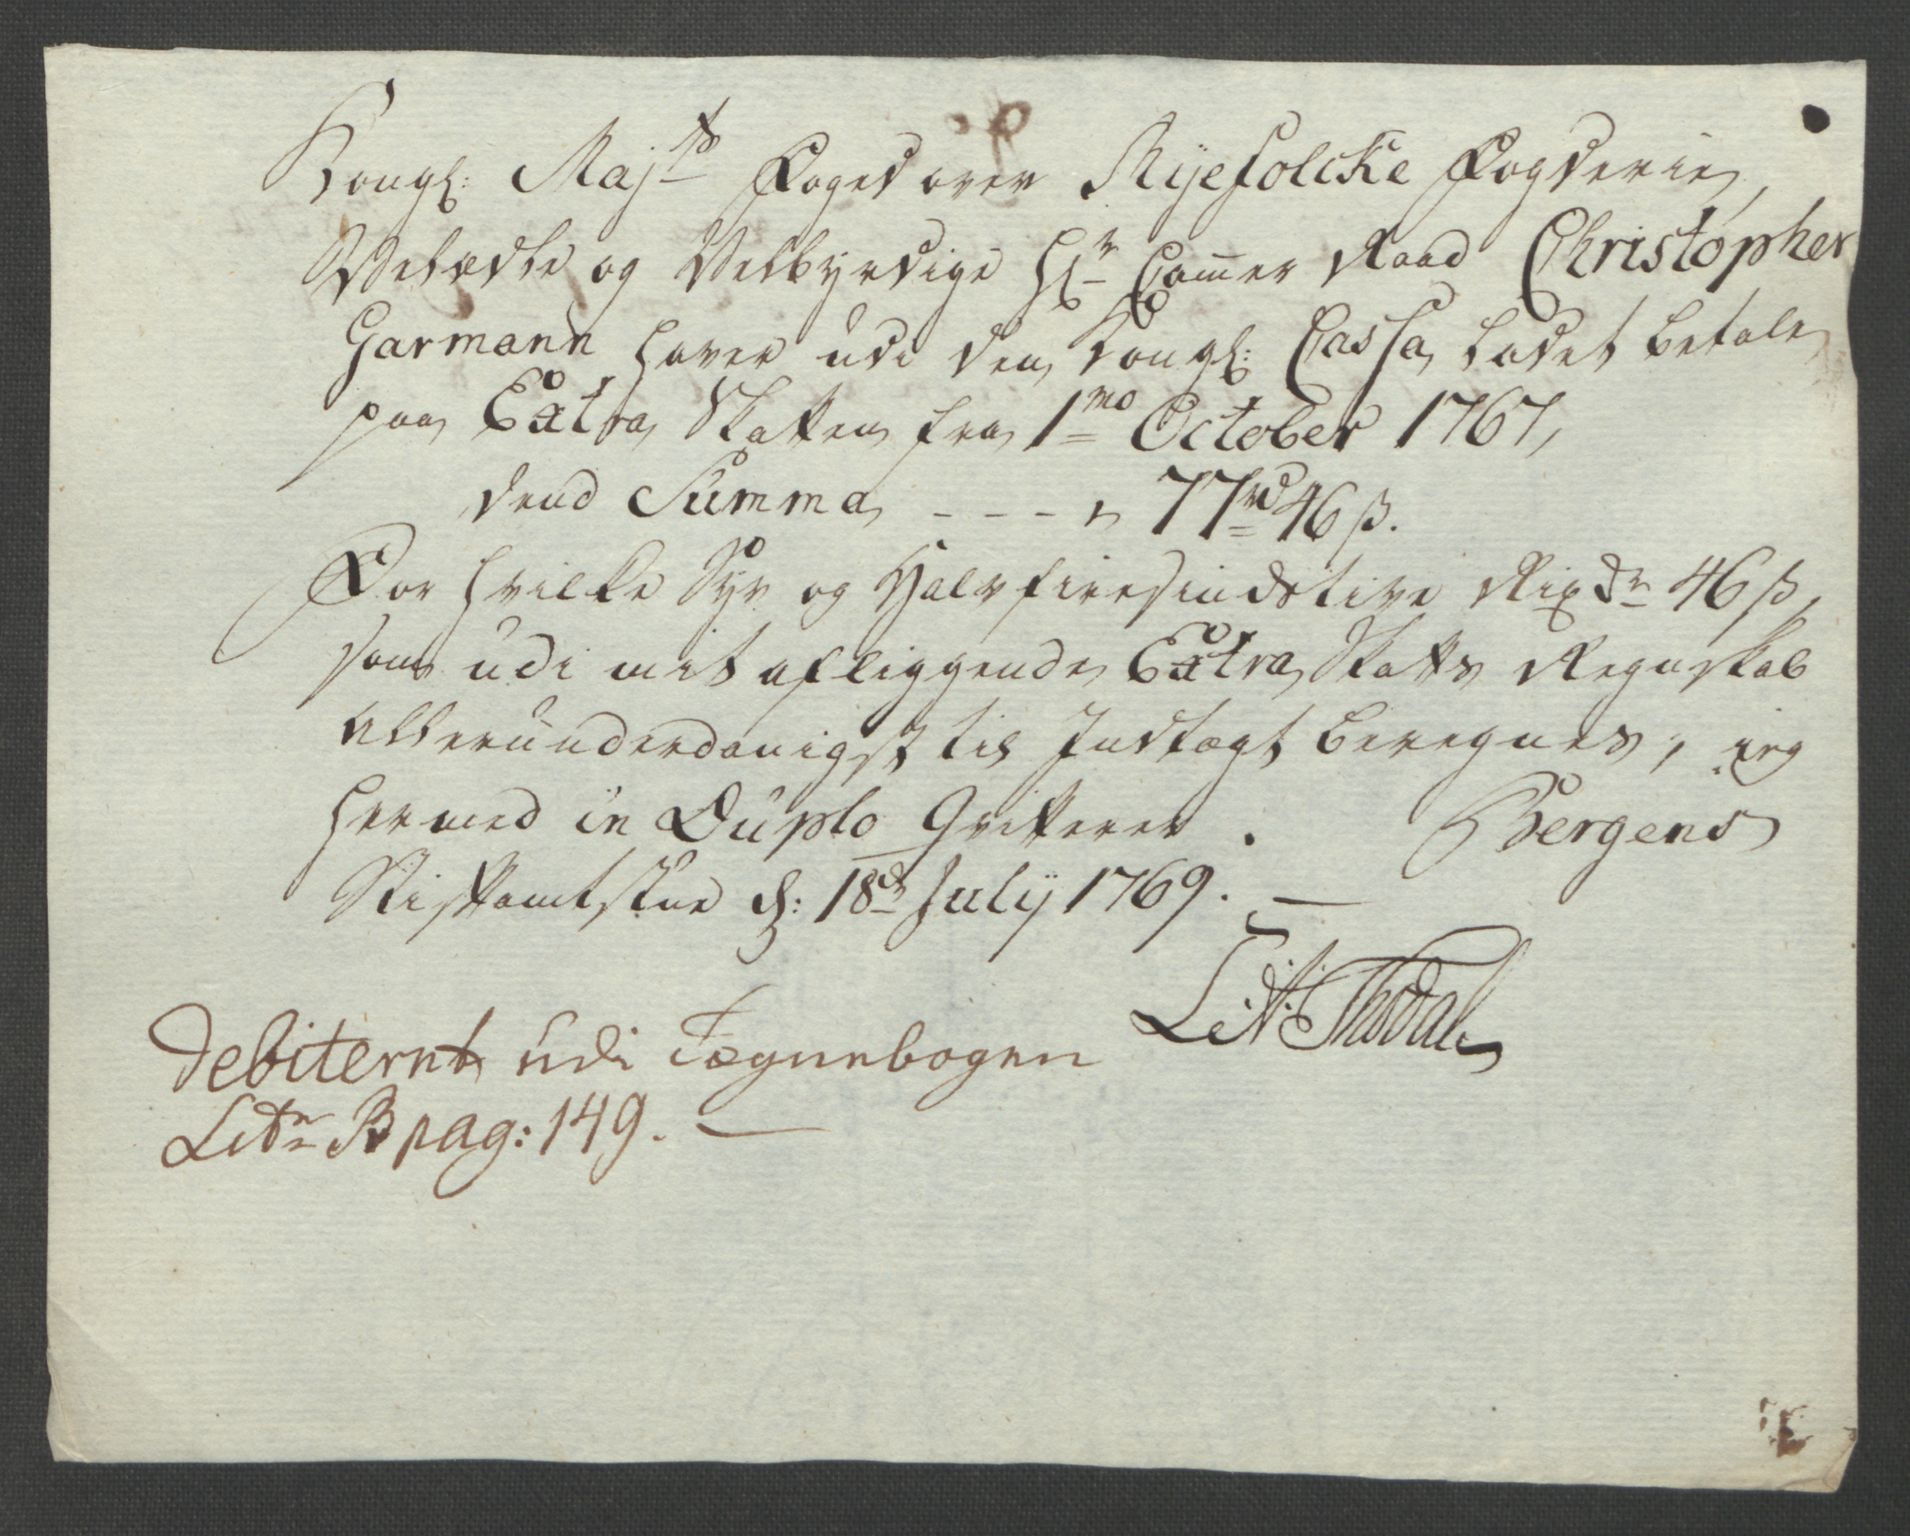 Kongl: Majts Foged over Ryefolcke Fogderie,
Velædle og Velbyrdige Hr Cammer Raad Christopher
Garmann haver udi den Kongl: Cassa ladet betale
paa Extra Skatten fra 1mo October 1767,
dend Summa - - - 77 rd 46 ß.
For hvilke Syv og Halvfiresindstive Rixdr 46 ß,
som udi mit aflæggende Extra Skatts Regnskab
allerunderdanigst til Indtægt beregnes, ieg
hermed in Duplo Qvitterer. Bergens
Stiftamtstue d: 18de Julÿ 1769.
Thodal
debiteret udi Tægnebogen
Litr B pag: 149.